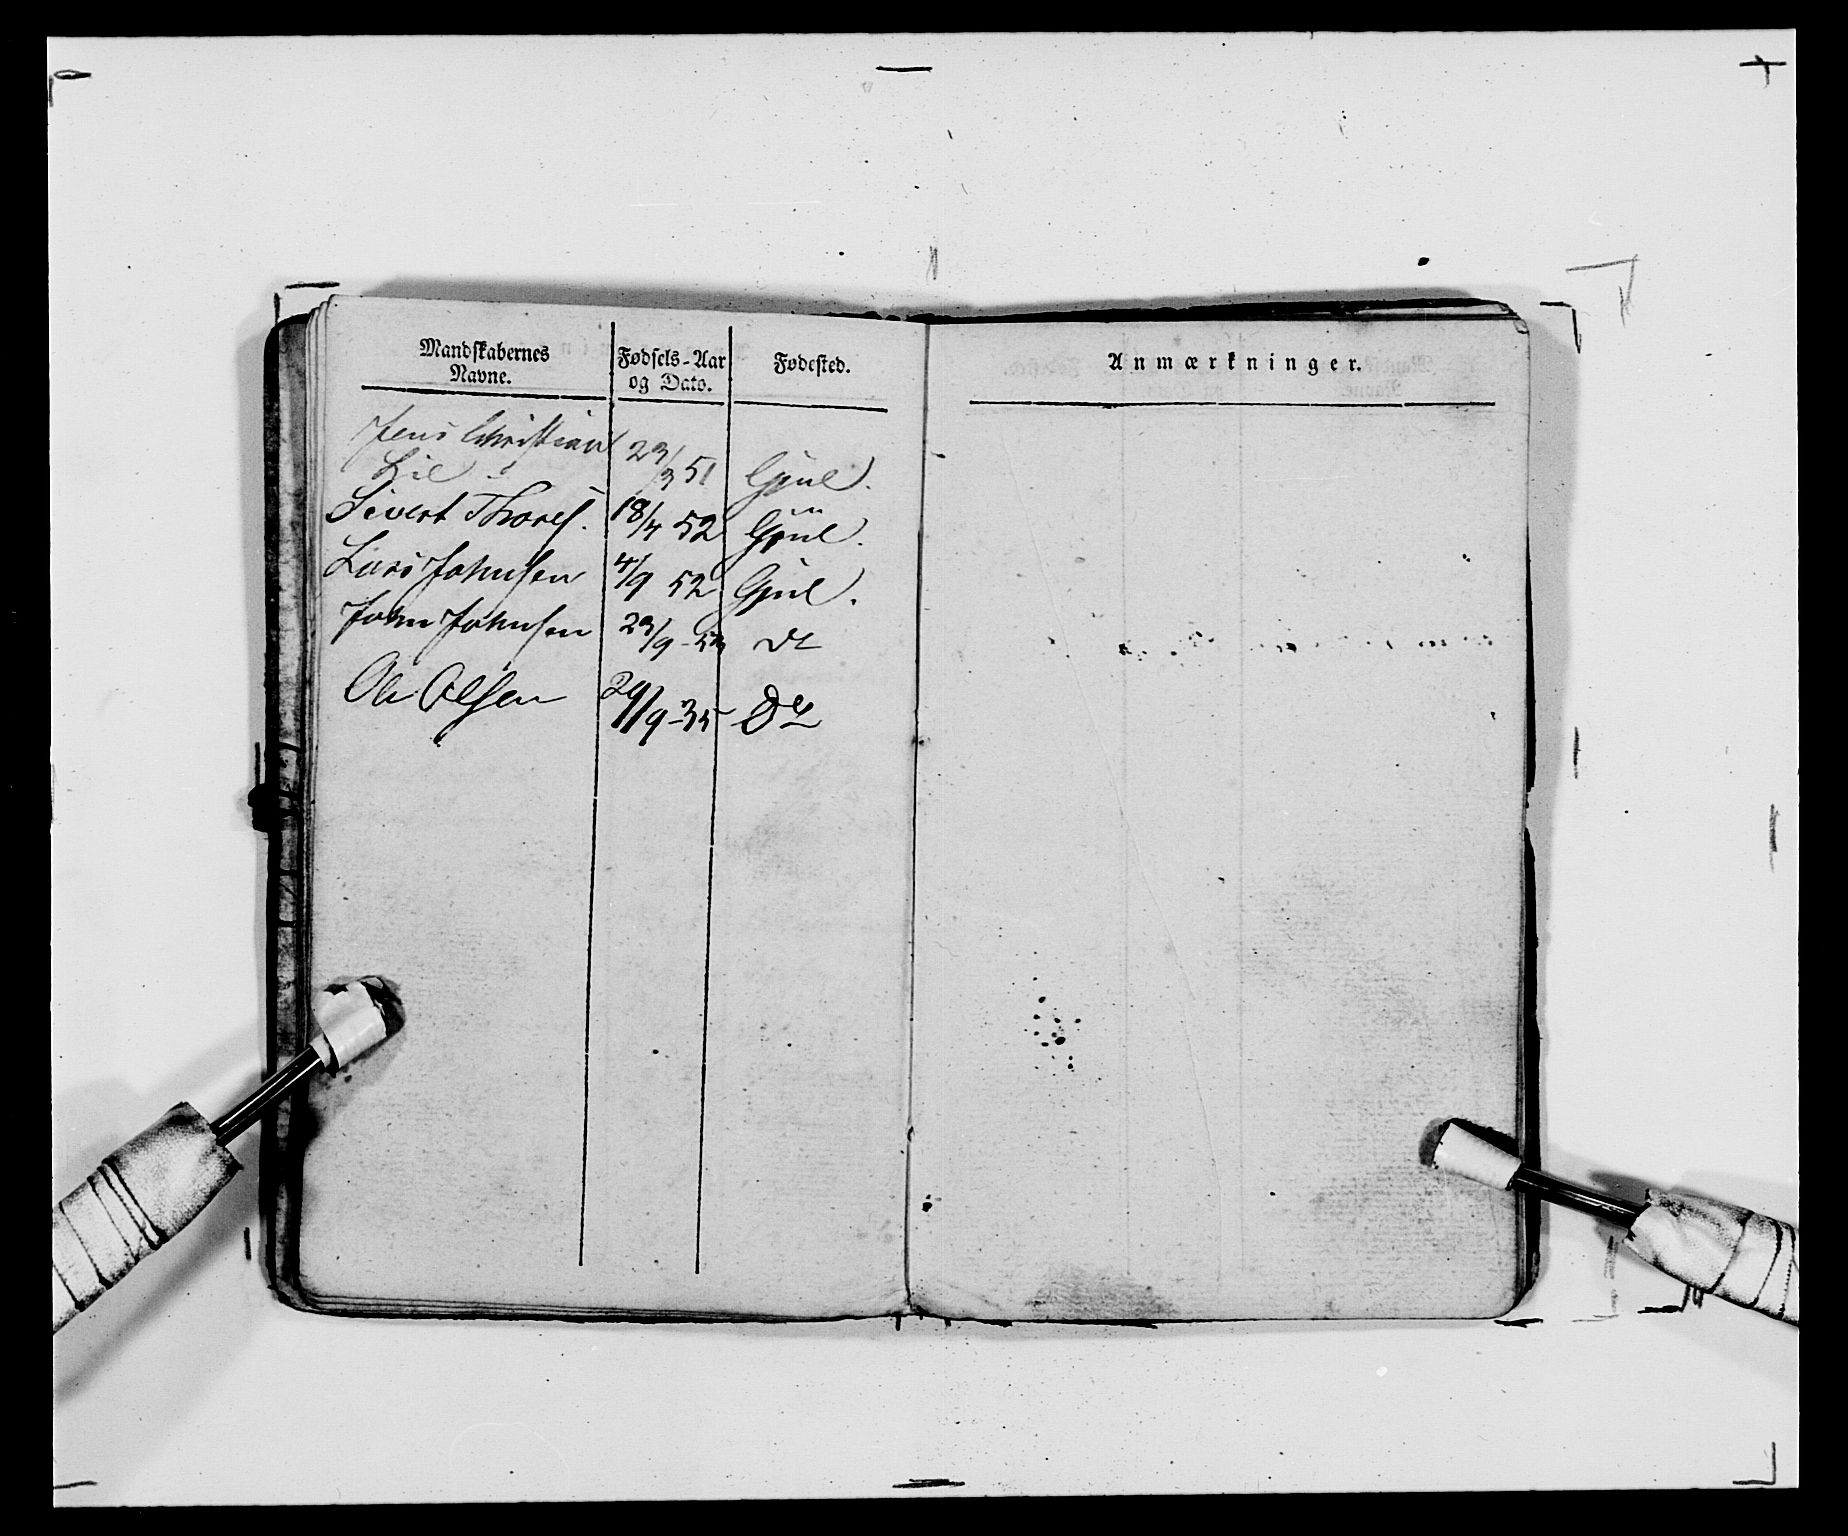 Mandskabernes
Navne.
Fødsels-Aar
og Dato.
Fødested.
Anmærkninger.
Jens Christian
Lie 23/3 51 Gjul.
Sivert Thores. 18/4 52 Gjul.
Lars Johnsen 4/9 52 Gjul.
John Johnsen 23/9-53 dt
Ole Olsen 29/9-35 Dt